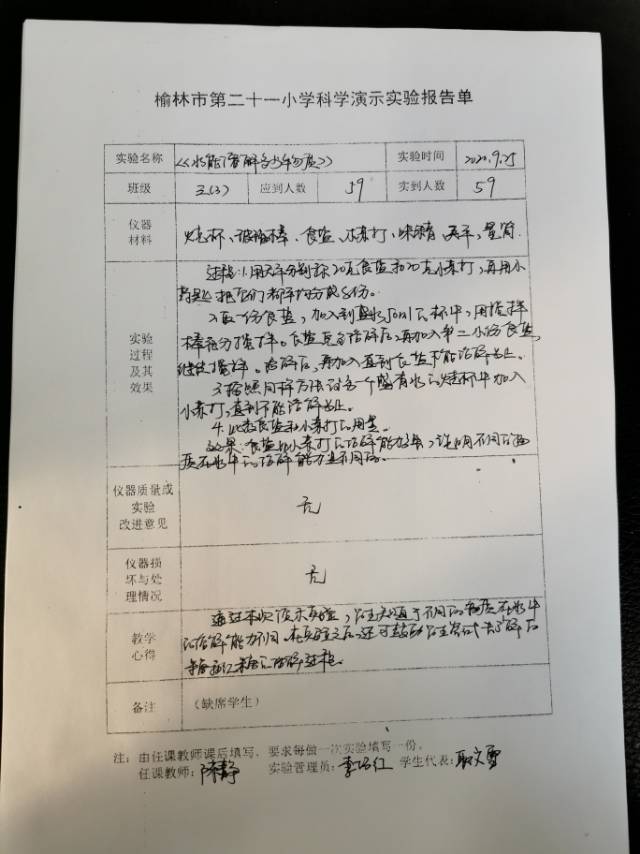 榆林市第二十一小学科学演示实验报告单
实验名称 《水能溶解多少物质》 实验时间 2020.9.25
班级 三(3) 应到人数 59 实到人数 59
仪器
材料
烧杯、玻璃棒、食盐、小苏打、味精、天平、量筒
实验
过程
及其
效果
过程:1.用天平分别称20克食盐和20克小苏打,再用小
药匙把它们都平均分成8份。
2.取一份食盐,加入到盛水50ml的杯中,用搅拌
棒充分搅拌。食盐完全溶解后,再加入第二小份食盐,
继续搅拌。溶解后,再加入直到食盐不能溶解为止。
3.按照同样方法往另一个盛有水的烧杯中加入
小苏打,直到不能溶解为止。
4.比较食盐和小苏打的用量。
效果:食盐比小苏打的溶解能力强,说明不同的物
质在水中的溶解能力是不同的。
仪器质量或
实验
改进意见
无
仪器损
坏与处
理情况
无
教学
心得
通过本次演示实验,学生知道了不同的物质在水中
的溶解能力不同。在实验之后,还可鼓励学生尝试去了解
溶解过程。
备注 (缺席学生)
注:由任课教师课后填写,要求每做一次实验填写一份。
任课教师:陈静 实验管理员:李 红 学生代表:耿文雪